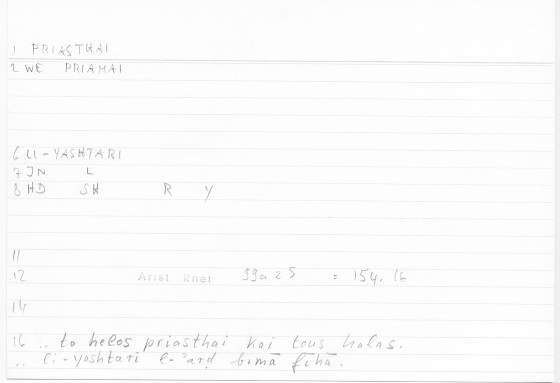 1 PRIASTHAI
2 WE PRIAMAI
6 LI-YASHTARI
7 IN L
8 HD SH R Y
11
12 Arist Rhet 99a25 = 154.16
14
16 .. to helos priasthai kai tous halas.
.. li-yashtari l-'ard bimā fīhā.